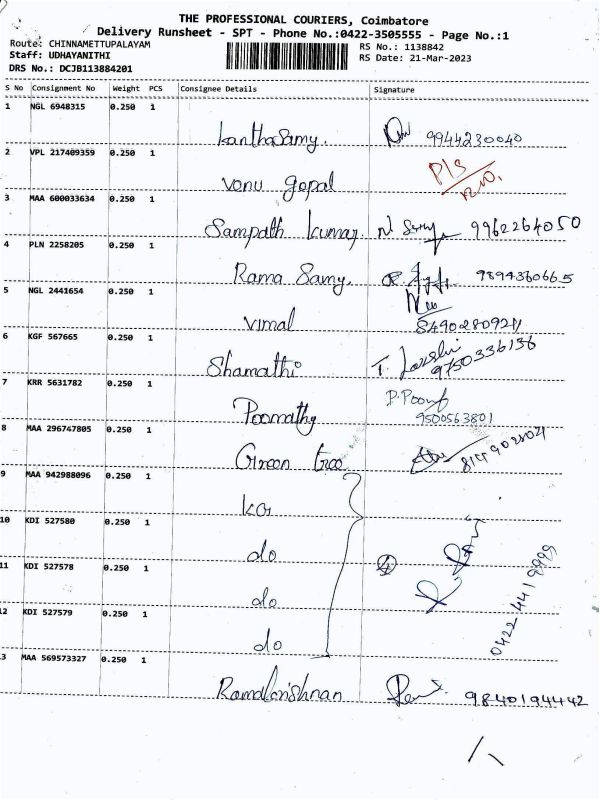 THE PROFESSIONAL COURIERS, Coimbatore
Delivery Runsheet - SPT - Phone No.:0422-3505555 - Page No.:1
Route: CHINNAMETTUPALAYAM
Staff: UDHAYANITHI
DRS No.: DCJB113884201
RS No.: 1138842
RS Date: 21-Mar-2023
S No Consignment No Weight PCS Consignee Details Signature
1 NGL 6948315 0.250 1
Kanthasamy. 9944230040
2 VPL 217409359 0.250 1
Vonu gopal P/S
3 MAA 600033634 0.250 1
Sampath kumar 9962264050
4 PLN 2258205 0.250 1
Rama Samy. 9894360665
5 NGL 2441654 0.250 1
Vimal 8490280921
6 KGF 567665 0.250 1
Shamathi 9750336136
7 KRR 5631782 0.250 1
Poomathy P. Poom
9500563801
8 MAA 296747805 0.250 1
Green tree
9 MAA 942988096 0.250 1
KG
10 KDI 527580 0.250 1
do
11 KDI 527578 0.250 1 4
do
12 KDI 527579 0.250 1
do 0422 4419999
3 MAA 569573327 0.250 1
Ramakrishnan 9840194442